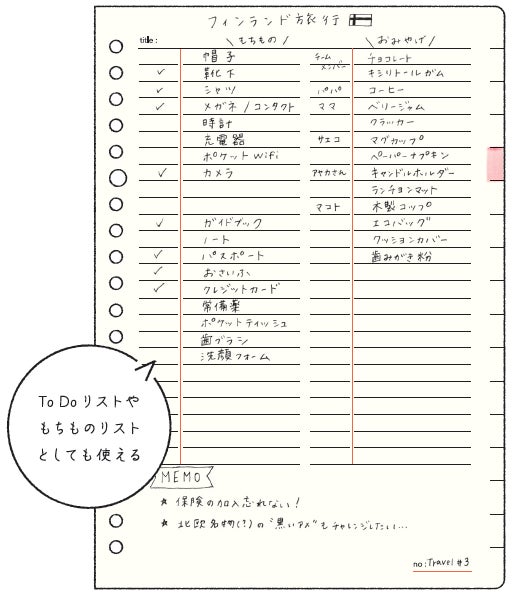 フィンランド旅行
title : \ もちもの / \ おみやげ /
帽子 チームメンバー チョコレート
✓ 靴下 キシリトールガム
✓ シャツ パパ コーヒー
✓ メガネ / コンタクト ママ ベリージャム
時計 クラッカー
充電器 サエコ マグカップ
ポケットWifi ペーパーナプキン
✓ カメラ アヤカさん キャンドルホルダー
ランチョンマット
マコト 木製コップ
✓ ガイドブック エコバッグ
ノート クッションカバー
✓ パスポート 歯みがき粉
✓ おさいふ
✓ クレジットカード
常備薬
ポケットティッシュ
歯ブラシ
洗顔フォーム
To Do リストや
もちものリスト
としても使える
MEMO
★ 保険の加入忘れない!
★ 北欧名物(?)の"黒いアメ"もチャレンジしたい...
no : Travel #3